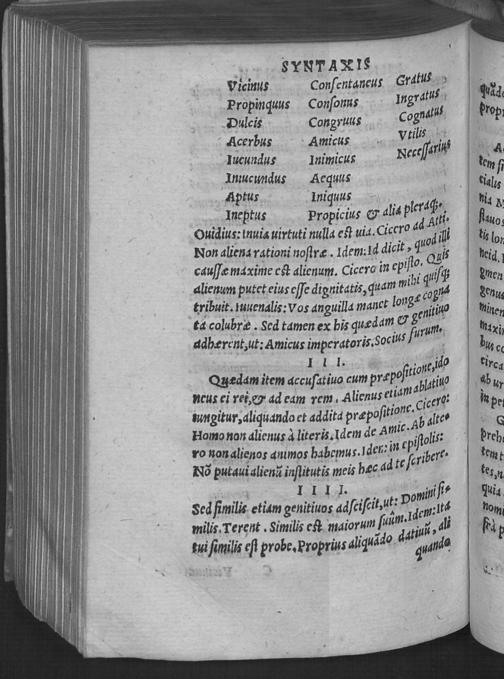 SYNTAXIS
Vicinus Consentaneus Gratus
Propinquus Consonus Ingratus
Dulcis Congruus Cognatus
Acerbus Amicus Vtilis
Iucundus Inimicus Necessarius
Iniucundus Aequus
Aptus Iniquus
Ineptus Propicius & alia pleraq;.
Ouidius: Inuia uirtuti nulla est uia. Cicero ad Atti.
Non aliena rationi nostræ. Idem: Id dicit, quod illi
caussæ maxime est alienum. Cicero in episto. Quis
alienum putet eius esse dignitatis, quam mihi quisq;
tribuit. Iuuenalis: Vos anguilla manet longæ cogna
ta colubræ. Sed tamen ex his quædam & genitiuo
adhærent, ut: Amicus imperatoris. Socius furum.
III.
Quædam item accusatiuo cum præpositione, ido
neus ei rei, & ad eam rem. Alienus etiam ablatiuo
iungitur, aliquando et addita præpositione. Cicero:
Homo non alienus à literis. Idem de Amic. Ab alte-
ro non alienos animos habemus. Idem: in epistolis:
Nō putaui alienū institutis meis hæc ad te scribere.
IIII.
Sed similis etiam genitiuos adsciscit, ut: Domini si-
milis. Terent. Similis est maiorum suûm. Idem: Ita
tui similis est probe. Proprius aliquādo datiuū, ali
quando
quāda
propr
tem si
cialis
nia
tis